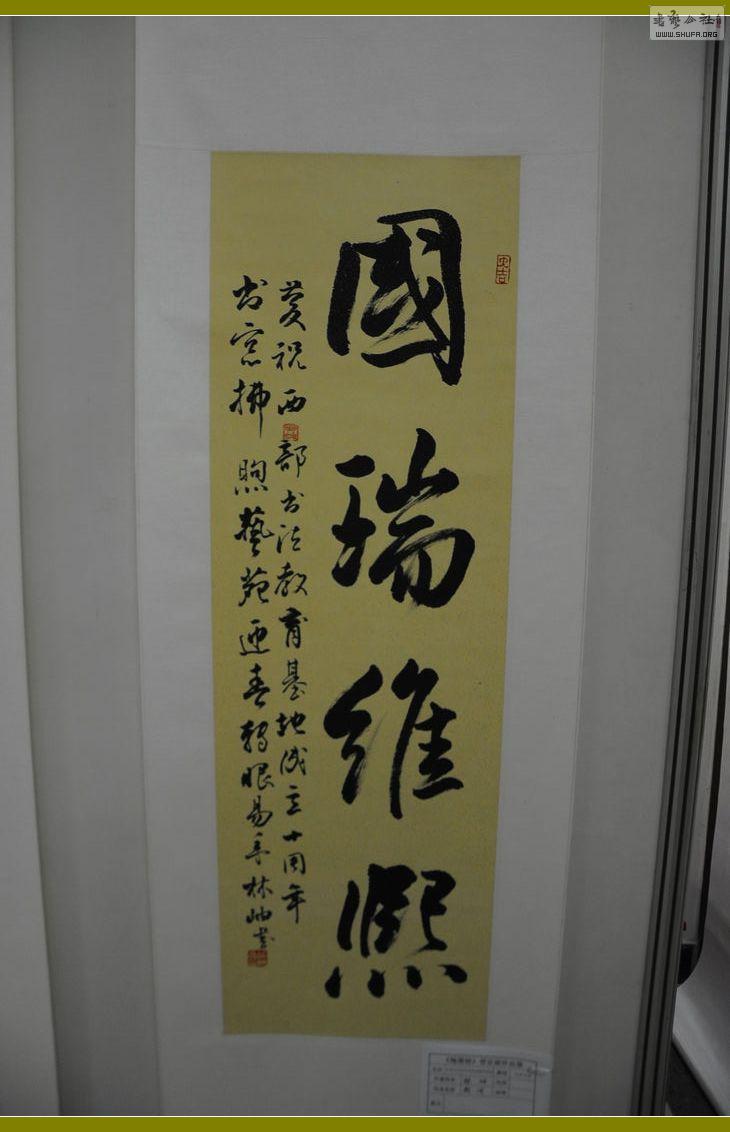 國瑞維熙
慶祝西部书法教育基地成立十周年
书窓拂煦藝苑迎春轉眼易年林岫書
书艺公社
WWW.SHUFA.ORG